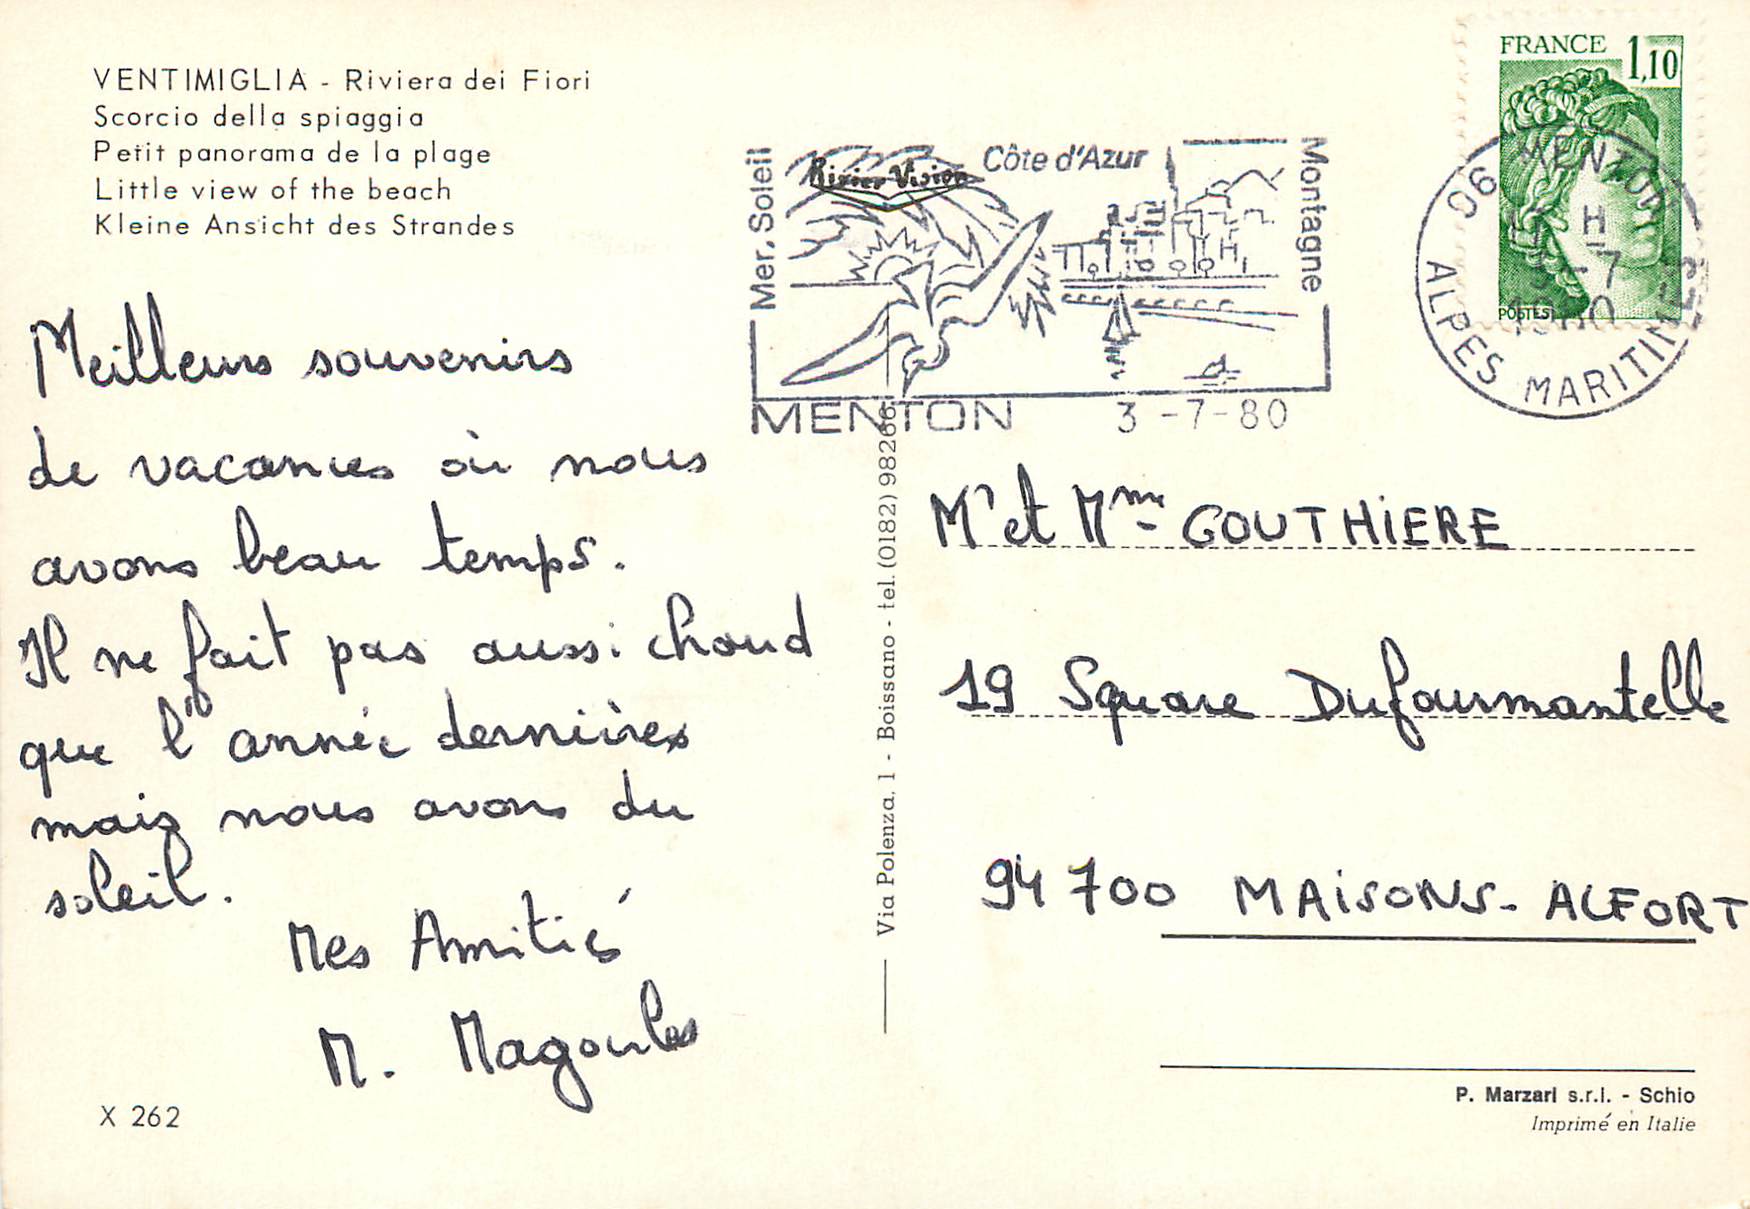 VENTIMIGLIA - Riviera dei Fiori
Scorcio della spiaggia
Petit panorama de la plage
Little view of the beach
Kleine Ansicht des Strandes
Meilleurs souvenirs
de vacances où nous
avons beau temps.
Il ne fait pas aussi chaud
que l'année dernières
mais nous avons du
soleil.
Mes Amitiés
M. Magoules
X 262
Mer. Soleil
Riviera Vision
Côte d'Azur
Montagne
MENTON
3 -7-80
FRANCE 1,10
POSTES
06 MENTON
H
-7
ALPES MARITIMES
Via Polenza, 1 - Boissano - tel. (0182) 98266
Mr et Mme GOUTHIERE
19 Square Dufourmantelle
94700 MAISONS-ALFORT
P. Marzari s.r.l. - Schio
Imprimé en Italie